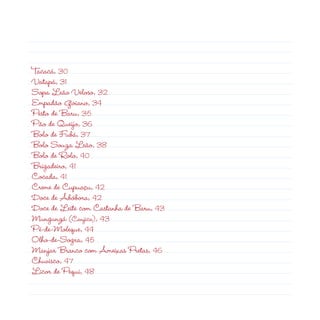 Tacacá, 30
Vatapá, 31
Sopa Leão Veloso, 32
Empadão Goiano, 34
Pesto de Baru, 35
Pão de Queijo, 36
Bolo de Fubá, 37
Bolo Souza Leão, 38
Bolo de Rolo, 40
Brigadeiro, 41
Cocada, 41
Creme de Cupuaçu, 42
Doce de Abóbora, 42
Doce de Leite com Castanha de Baru, 43
Mungunzá (Canjica), 43
Pé-de-Moleque, 44
Olho-de-Sogra, 45
Manjar Branco com Ameixas Pretas, 46
Chuvisco, 47
Licor de Pequi, 48